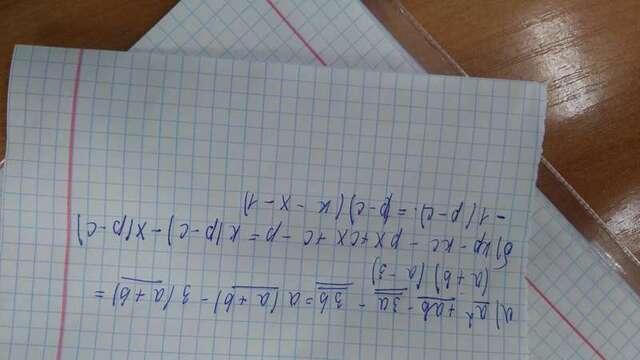 а) a² + ab - 3a - 3b = a(a+b) - 3(a+b) =
(a+b)(a-3)
б) kp - kc - px + cx + c - p = k(p-c) - x(p-c)
- 1(p-c) = p-c)(k - x - 1)